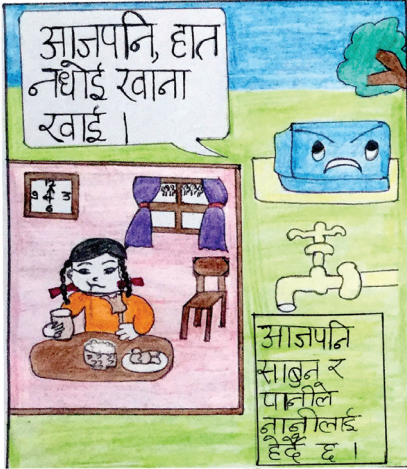 आजपनि, हात
नधोई खाना
खाई ।
12
9 3
6
आजपनि
साबुन र
पानीले
नानीलाई
हेर्दै छ ।